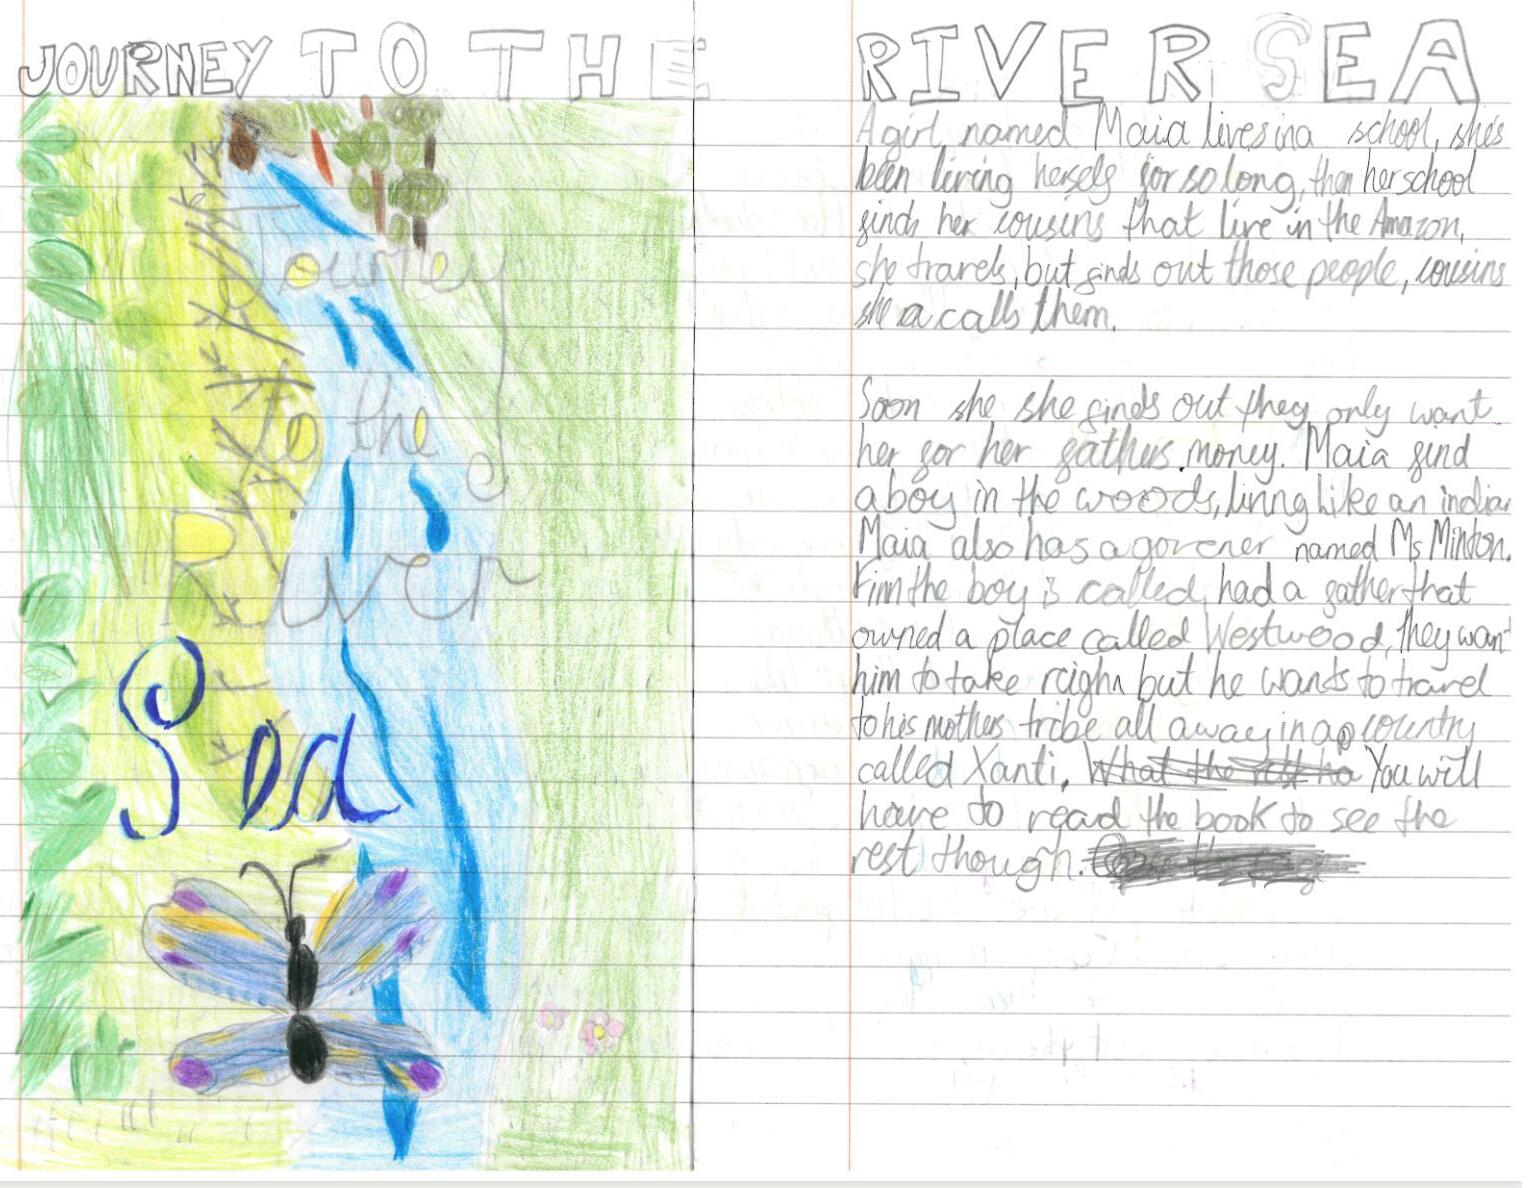 JOURNEY TO THE RIVER SEA
Journey
to the
River
Sea
A girl named Maia lives in a school, she's
been living herself for so long, then her school
finds her cousins that live in the Amazon,
she travels, but finds out those people, cousins
she a calls them.
Soon she she finds out they only want
her for her fathers money. Maia find
a boy in the woods, living like an indian
Maia also has a governer named Ms Minton.
Finn the boy is called, had a father that
owned a place called Westwood, they want
him to take reighn but he wants to travel
to his mothers tribe all away in a country
called Xanti. What the rest ha You will
have to read the book to see the
rest though.